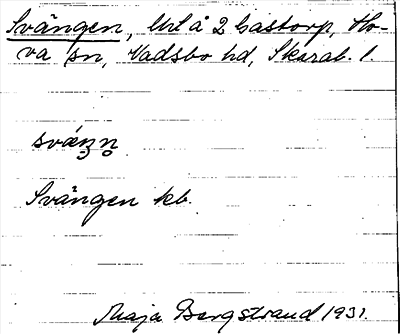 Svängen, Url å 2 Gastorp, Ho-
va sn, Vadsbo hd, Skarab. l.
Svängen kb.
Maja Bergstrand 1931.